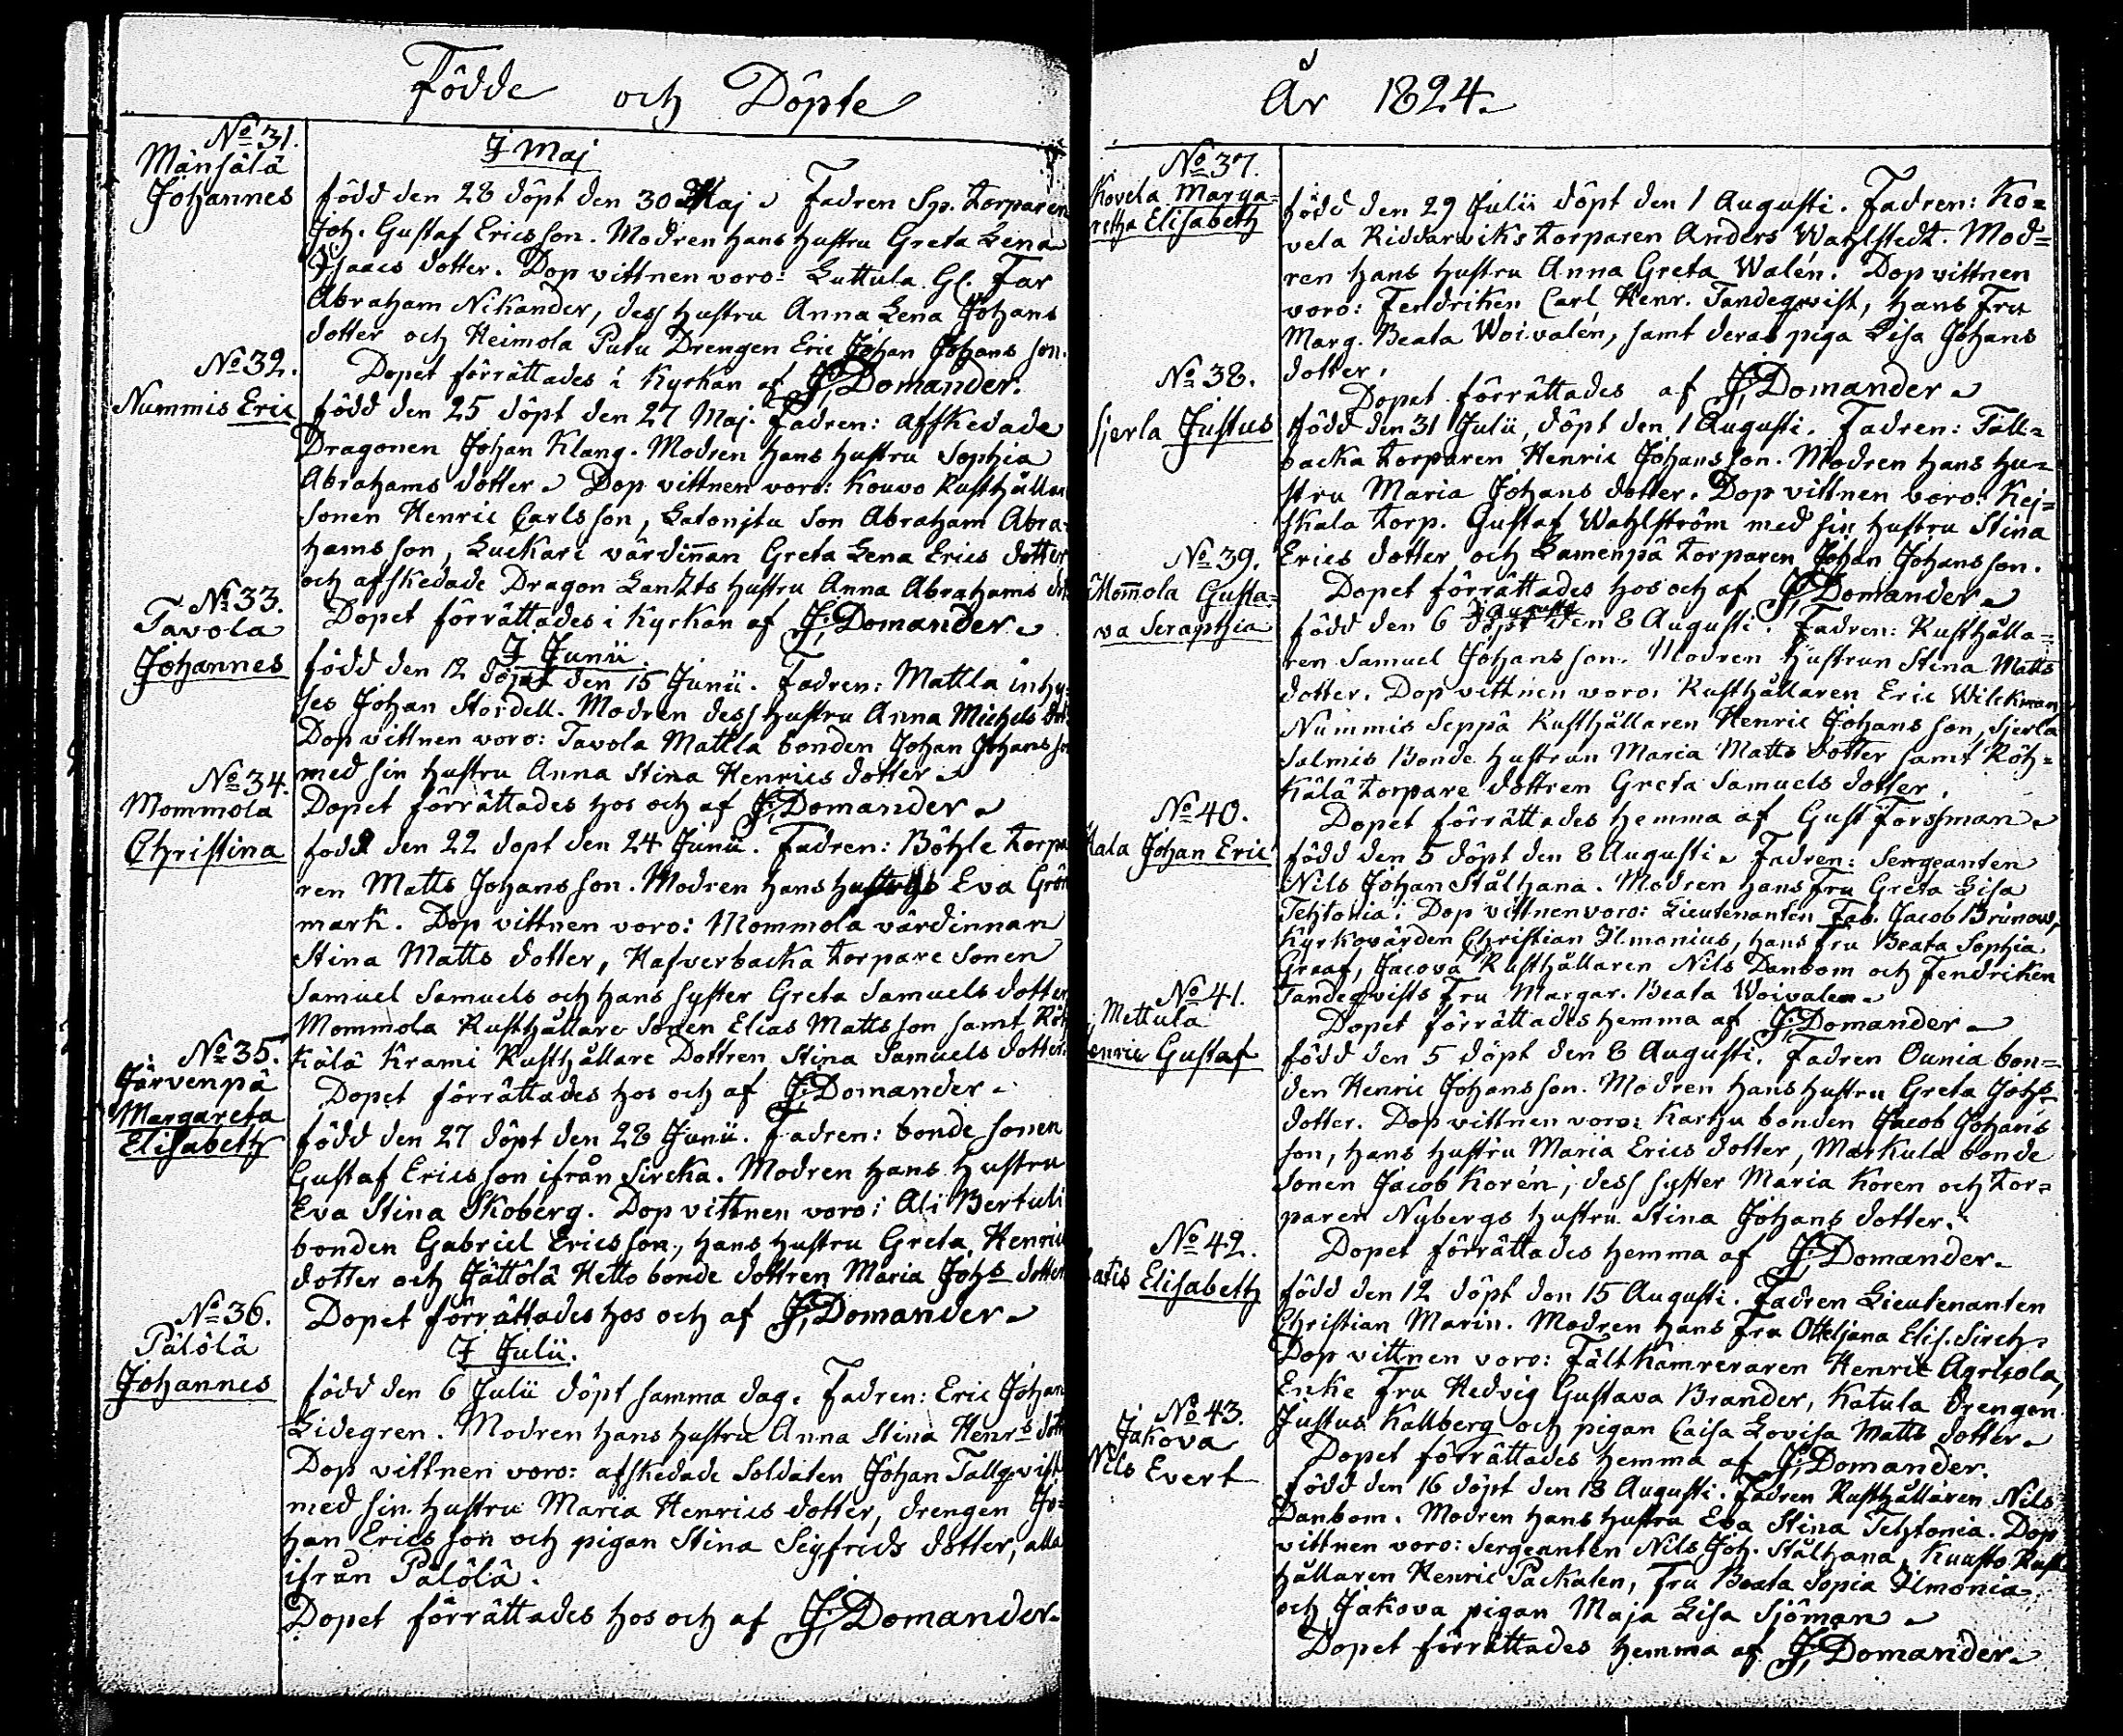 Födde och Döpte
No 31.
Mänsälä
Johannes
I Maj
född den 28 döpt den 30 Maj. Fadren Sp. torparen
Joh. Gustaf Ericsson. Modren hans hustru Greta Lena
Isaacs dotter. Dop vittnen voro: Luttula Gl. Far
Abraham Nikander, dess hustru Anna Lena Johans
dotter och Heimola Putu Drengen Eric Johan Johans son.
Dopet förrättades i Kyrkan af J. Domander.
No 32.
Nummis Eric
född den 25 döpt den 27 Maj. Fadren: affskedade
Dragonen Johan Klang. Modren hans hustru Sophia
Abrahams dotter. Dop vittnen voro: Kouvo Rusthållare
sonen Henric Carlsson, Latonjtu son Abraham Abra-
hams son, Luckari värdinnan Greta Lena Erics dotter
och afskedade Dragon Lantzts hustru Anna Abrahams
Dopet förrättades i Kyrkan af J. Domander.
No 33.
Tavola
Johannes
I Junii.
född den 12 döpt den 15 Junii. Fadren: Mattla inhy-
ses Johan Stordell. Modren dess hustru Anna Michels
Dop vittnen voro: Tavola Mattla bonden Johan Johans
med sin hustru Anna Stina Henrics dotter
Dopet förrättades hos och af J. Domander.
No 34.
Mommola
Christina
född den 22 döpt den 24 Junii. Fadren: Böhle torpa
ren Matts Johansson. Modren hans hustru Eva Grön
mark. Dop vittnen voro: Mommola värdinnan
Stina Matts dotter, Hafverbacka torpare sonen
Samuel Samuels och hans syster Greta Samuels dotter
Mommola Rusthållare sonen Elias Mattsson samt Röh
kälä Krami Rusthållare Dottren Stina Samuels dotter.
Dopet förrättades hos och af J. Domander.
No 35.
Järvenpä
Margareta
Elisabeth
född den 27 döpt den 28 Junii. Fadren: bonde sonen
Gustaf Ericsson ifrån Sircka. Modren hans hustru
Eva Stina Skoberg. Dop vittnen voro: Ali Bertuli
bonden Gabriel Ericsson, hans hustru Greta Henric
dotter och Jättölä Hetto bonde dottren Maria Johs dotter
Dopet förrättades hos och af J. Domander.
No 36.
Pälölä
Johannes
I Julii.
född den 6 Julii döpt samma dag. Fadren: Eric Johan
Lidegren. Modren hans hustru Anna Stina Henrs dott
Dop vittnen voro: afskedade Soldaten Johan Tallqvist
med sin hustru Maria Henrics dotter, drengen Jo-
han Ericsson och pigan Stina Sigfrids dotter, alla
ifrån Pälölä.
Dopet förrättades hos och af J. Domander.
År 1824.
No 37.
Kovela Marga-
retha Elisabeth
född den 29 Julii döpt den 1 Augusti. Fadren: Ko-
vela Riddarwiks torparen Anders Wahlstedt. Mod-
ren hans hustru Anna Greta Walén. Dop vittnen
voro: Fendriken Carl Henr. Tandeqvist, hans Fru
Marg. Beata Woivalén, samt deras piga Lisa Johans
dotter.
Dopet förrättades af J. Domander.
No 38.
Sjerla Justus
född den 31 Julii, döpt den 1 Augusti. Fadren: Täll-
backa torparen Henric Johansson. Modren hans hu-
stru Maria Johans dotter. Dop vittnen voro: Kej-
skala torp. Gustaf Wahlström med sin hustru Stina
Erics dotter och Lamenpä torparen Johan Johansson.
Dopet förrättades hos och af J. Domander.
No 39.
Mommola Gusta-
va Seraphia
född den 6 döpt den 8 Augusti. Fadren: Rusthålla-
ren Samuel Johansson. Modren hustrun Stina Matts
dotter. Dop vittnen voro: Rusthållaren Eric Wilckman
Nummis Seppä Rusthållaren Henric Johans son, Sjerla
Salmis Bonde hustrun Maria Matts dotter samt Röh-
kälä torpare dottren Greta Samuels dotter.
Dopet förrättades hemma af Gust Forssman.
No 40.
kala Johan Eric
född den 5 döpt den 8 Augusti. Fadren: Sergeanten
Nils Johan Stålhana. Modren hans Fru Greta Lisa
Tehtonia. Dop vittnen voro: Lieutenanten Fab. Jacob Brunow,
Kyrkovärden Christian Ilmonius, hans Fru Beata Sophia
Graaf, Jacova Rusthållaren Nils Danbom och Fendriken
Tandeqvists Fru Margar. Beata Woivalen.
Dopet förrättades hemma af J. Domander.
No 41.
Mettula
Henric Gustaf
född den 5 döpt den 8 Augusti. Fadren Ounia bon-
den Henric Johansson. Modren hans hustru Greta Johs
dotter. Dop vittnen voro: Karhu bonden Jacob Johans
son, hans hustru Maria Erics dotter, Markula bonde
sonen Jacob Korén, dess syster Maria Koren och tor-
paren Nybergs hustru Stina Johans dotter.
Dopet förrättades hemma af J. Domander.
No 42.
Latis Elisabeth
född den 12 döpt den 15 Augusti. Fadren Lieutenanten
Christian Marin. Modren hans Fru Otteljana Elis. Sirch.
Dop vittnen voro: Fältkamreraren Henric Agricola,
Enke Fru Hedvig Gustava Brander, Katula drengen
Justus Kallberg och pigan Caisa Lovisa Matts dotter.
Dopet förrättades hemma af J. Domander.
No 43.
Jakova
Nils Evert
född den 16 döpt den 18 Augusti. Fadren Rusthållaren Nils
Danbom. Modren hans hustru Eva Stina Tehtonia. Dop
vittnen voro: Sergeanten Nils Joh. Stålhana, Kuusto Rust
hållaren Henric Packalen, Fru Beata Sopia Ilmonia
och Jakova pigan Maja Lisa Sjöman.
Dopet förrättades hemma af J. Domander.